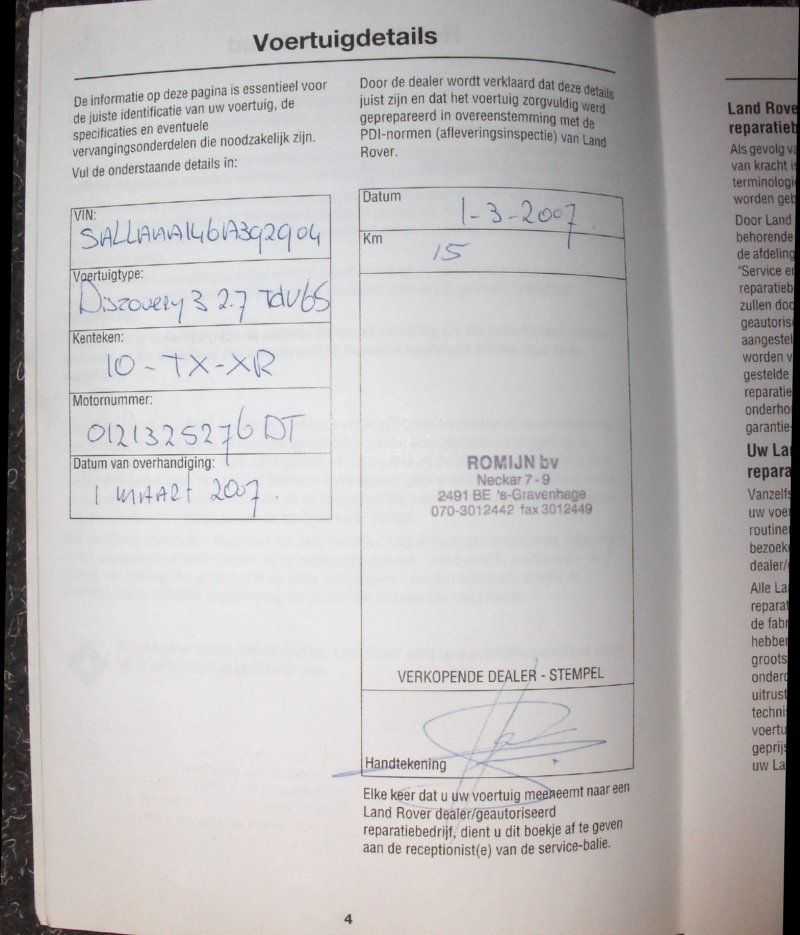 Voertuigdetails
De informatie op deze pagina is essentieel voor
de juiste identificatie van uw voertuig, de
specificaties en eventuele
vervangingsonderdelen die noodzakelijk zijn.
Vul de onderstaande details in:
VIN:
SALLAAA146A392904
Voertuigtype:
Discovery 3 2.7 TdV6S
Kenteken:
10-TX-XR
Motornummer:
0121325276DT
Datum van overhandiging:
1 MAART 2007.
Door de dealer wordt verklaard dat deze details
juist zijn en dat het voertuig zorgvuldig werd
geprepareerd in overeenstemming met de
PDI-normen (afleveringsinspectie) van Land
Rover.
Datum
1-3-2007
Km
15
ROMIJN bv
Neckar 7-9
2491 BE 's-Gravenhage
070-3012442 fax 3012449
VERKOPENDE DEALER - STEMPEL
Handtekening
Elke keer dat u uw voertuig meeneemt naar een
Land Rover dealer/geautoriseerd
reparatiebedrijf, dient u dit boekje af te geven
aan de receptionist(e) van de service-balie.
4
Land Rove
reparatieb
Als gevolg va
van kracht is
terminologi
worden geb
Door Land
behorende
de afdeling
"Service en
reparatieb
zullen doo
geautoris
aangestel
worden v
gestelde
reparatie
onderho
garantie-
Uw La
repara
Vanzelfs
uw voer
routine
bezoek
dealer/
Alle La
reparat
de fabr
hebben
groots
onderd
uitrust
techni
voertu
geprijs
uw La